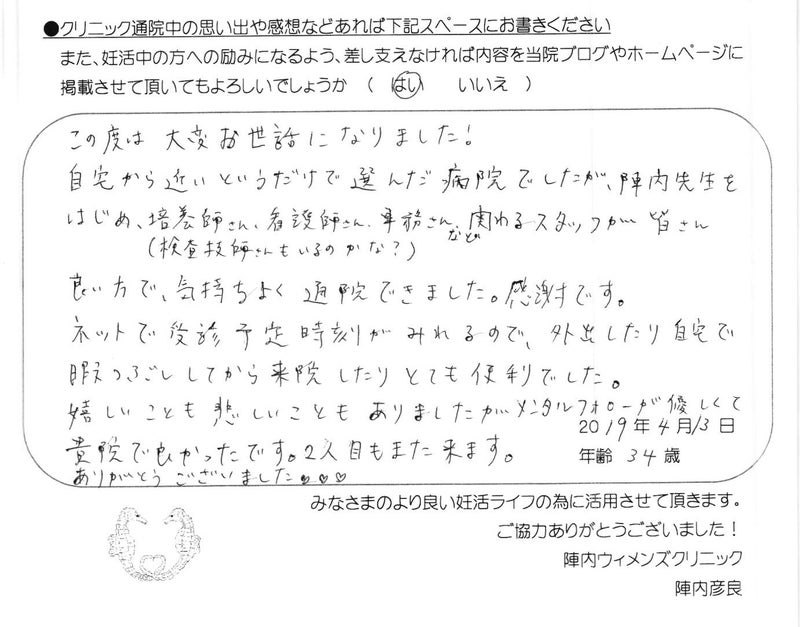 ●クリニック通院中の思い出や感想などあれば下記スペースにお書きください
また、妊活中の方への励みになるよう、差し支えなければ内容を当院ブログやホームページに
掲載させて頂いてもよろしいでしょうか （ はい いいえ ）
この度は 大変お世話になりました!
自宅から近いというだけで選んだ病院でしたが、陣内先生を
はじめ、培養師さん、看護師さん、事務さん、など関わるスタッフが皆さん
(検査技師さんもいるのかな?)
良い方で、気持ちよく通院できました。感謝です。
ネットで受診予定時刻がみれるので、外出したり自宅で
暇つぶししてから来院したりとても便利でした。
嬉しいことも悲しいこともありましたがメンタルフォローが優しくて
貴院で良かったです。2人目もまた来ます。
ありがとうございました♡♡♡
2019年4月13日
年齢 34歳
みなさまのより良い妊活ライフの為に活用させて頂きます。
ご協力ありがとうございました！
陣内ウィメンズクリニック
陣内彦良